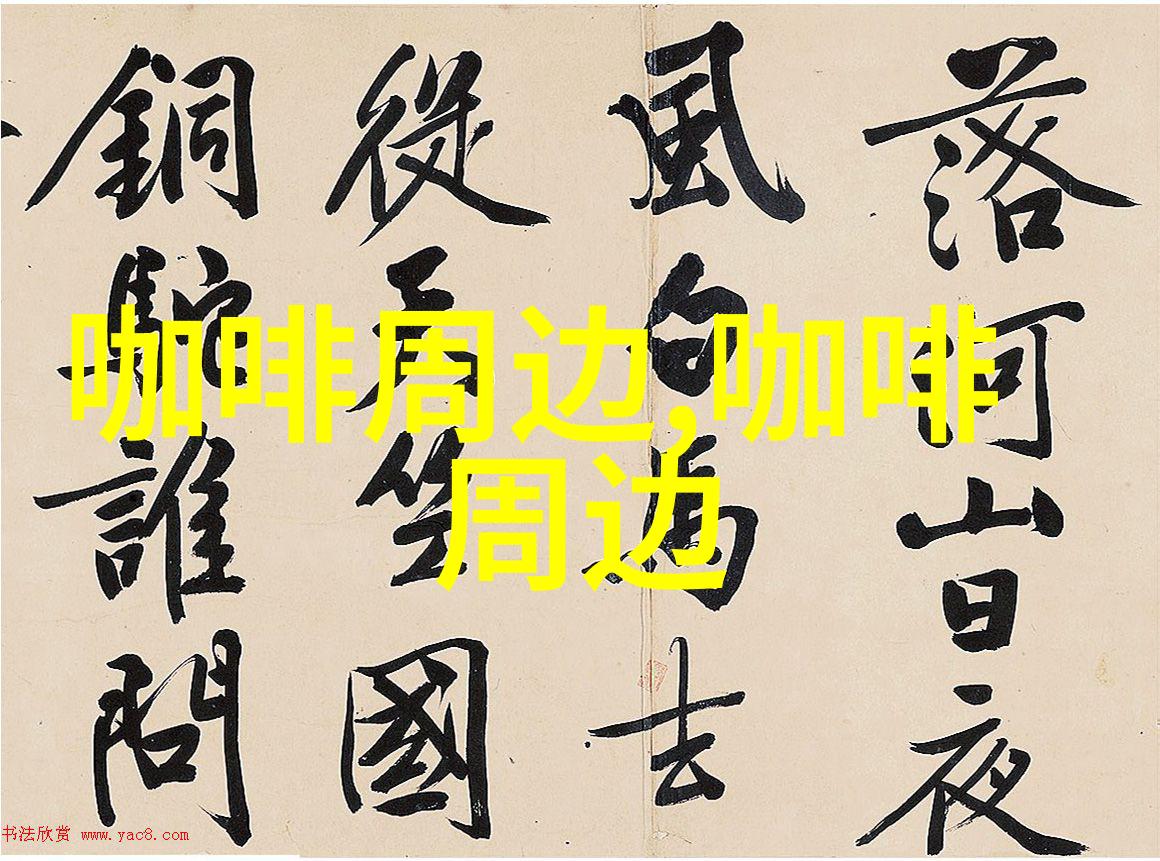 落河山日夜
風白馬去
從天竺國
銅駝誰問
咖啡周边,咖啡
周边
书法欣赏 www.yac8.com